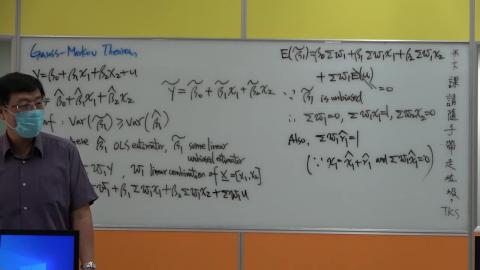 Gauss-Markov Theorem
Y=β₀+β₁x₁+β₂x₂+u
=β̂₀+β̂₁x₁+β̂₂x₂
Ỹ=β̃₀+β̃₁x₁+β̃₂x₂
f: Var(β̃₁)≥Var(β̂₁)
here β̂₁ OLS estimator, β̃₁ some linear
unbiased estimator
wᵢY, wᵢ linear combination of X=[x₁,x₂]
Σwᵢ+β₁Σwᵢx₁+β₂Σwᵢx₂+Σwᵢu
E(β̃₁)=β₀Σwᵢ+β₁Σwᵢx₁+β₂Σwᵢx₂
+ΣwᵢE(u)
=0
∵ β̃₁ is unbiased
∴ Σwᵢ=0, Σwᵢx₁=1, Σwᵢx₂=0
Also, Σwᵢr̂₁=1
(∵ x₁=x̂₁+r̂₁ and Σwᵢx̂₁=0)
下課請隨手帶走垃圾,
TKS